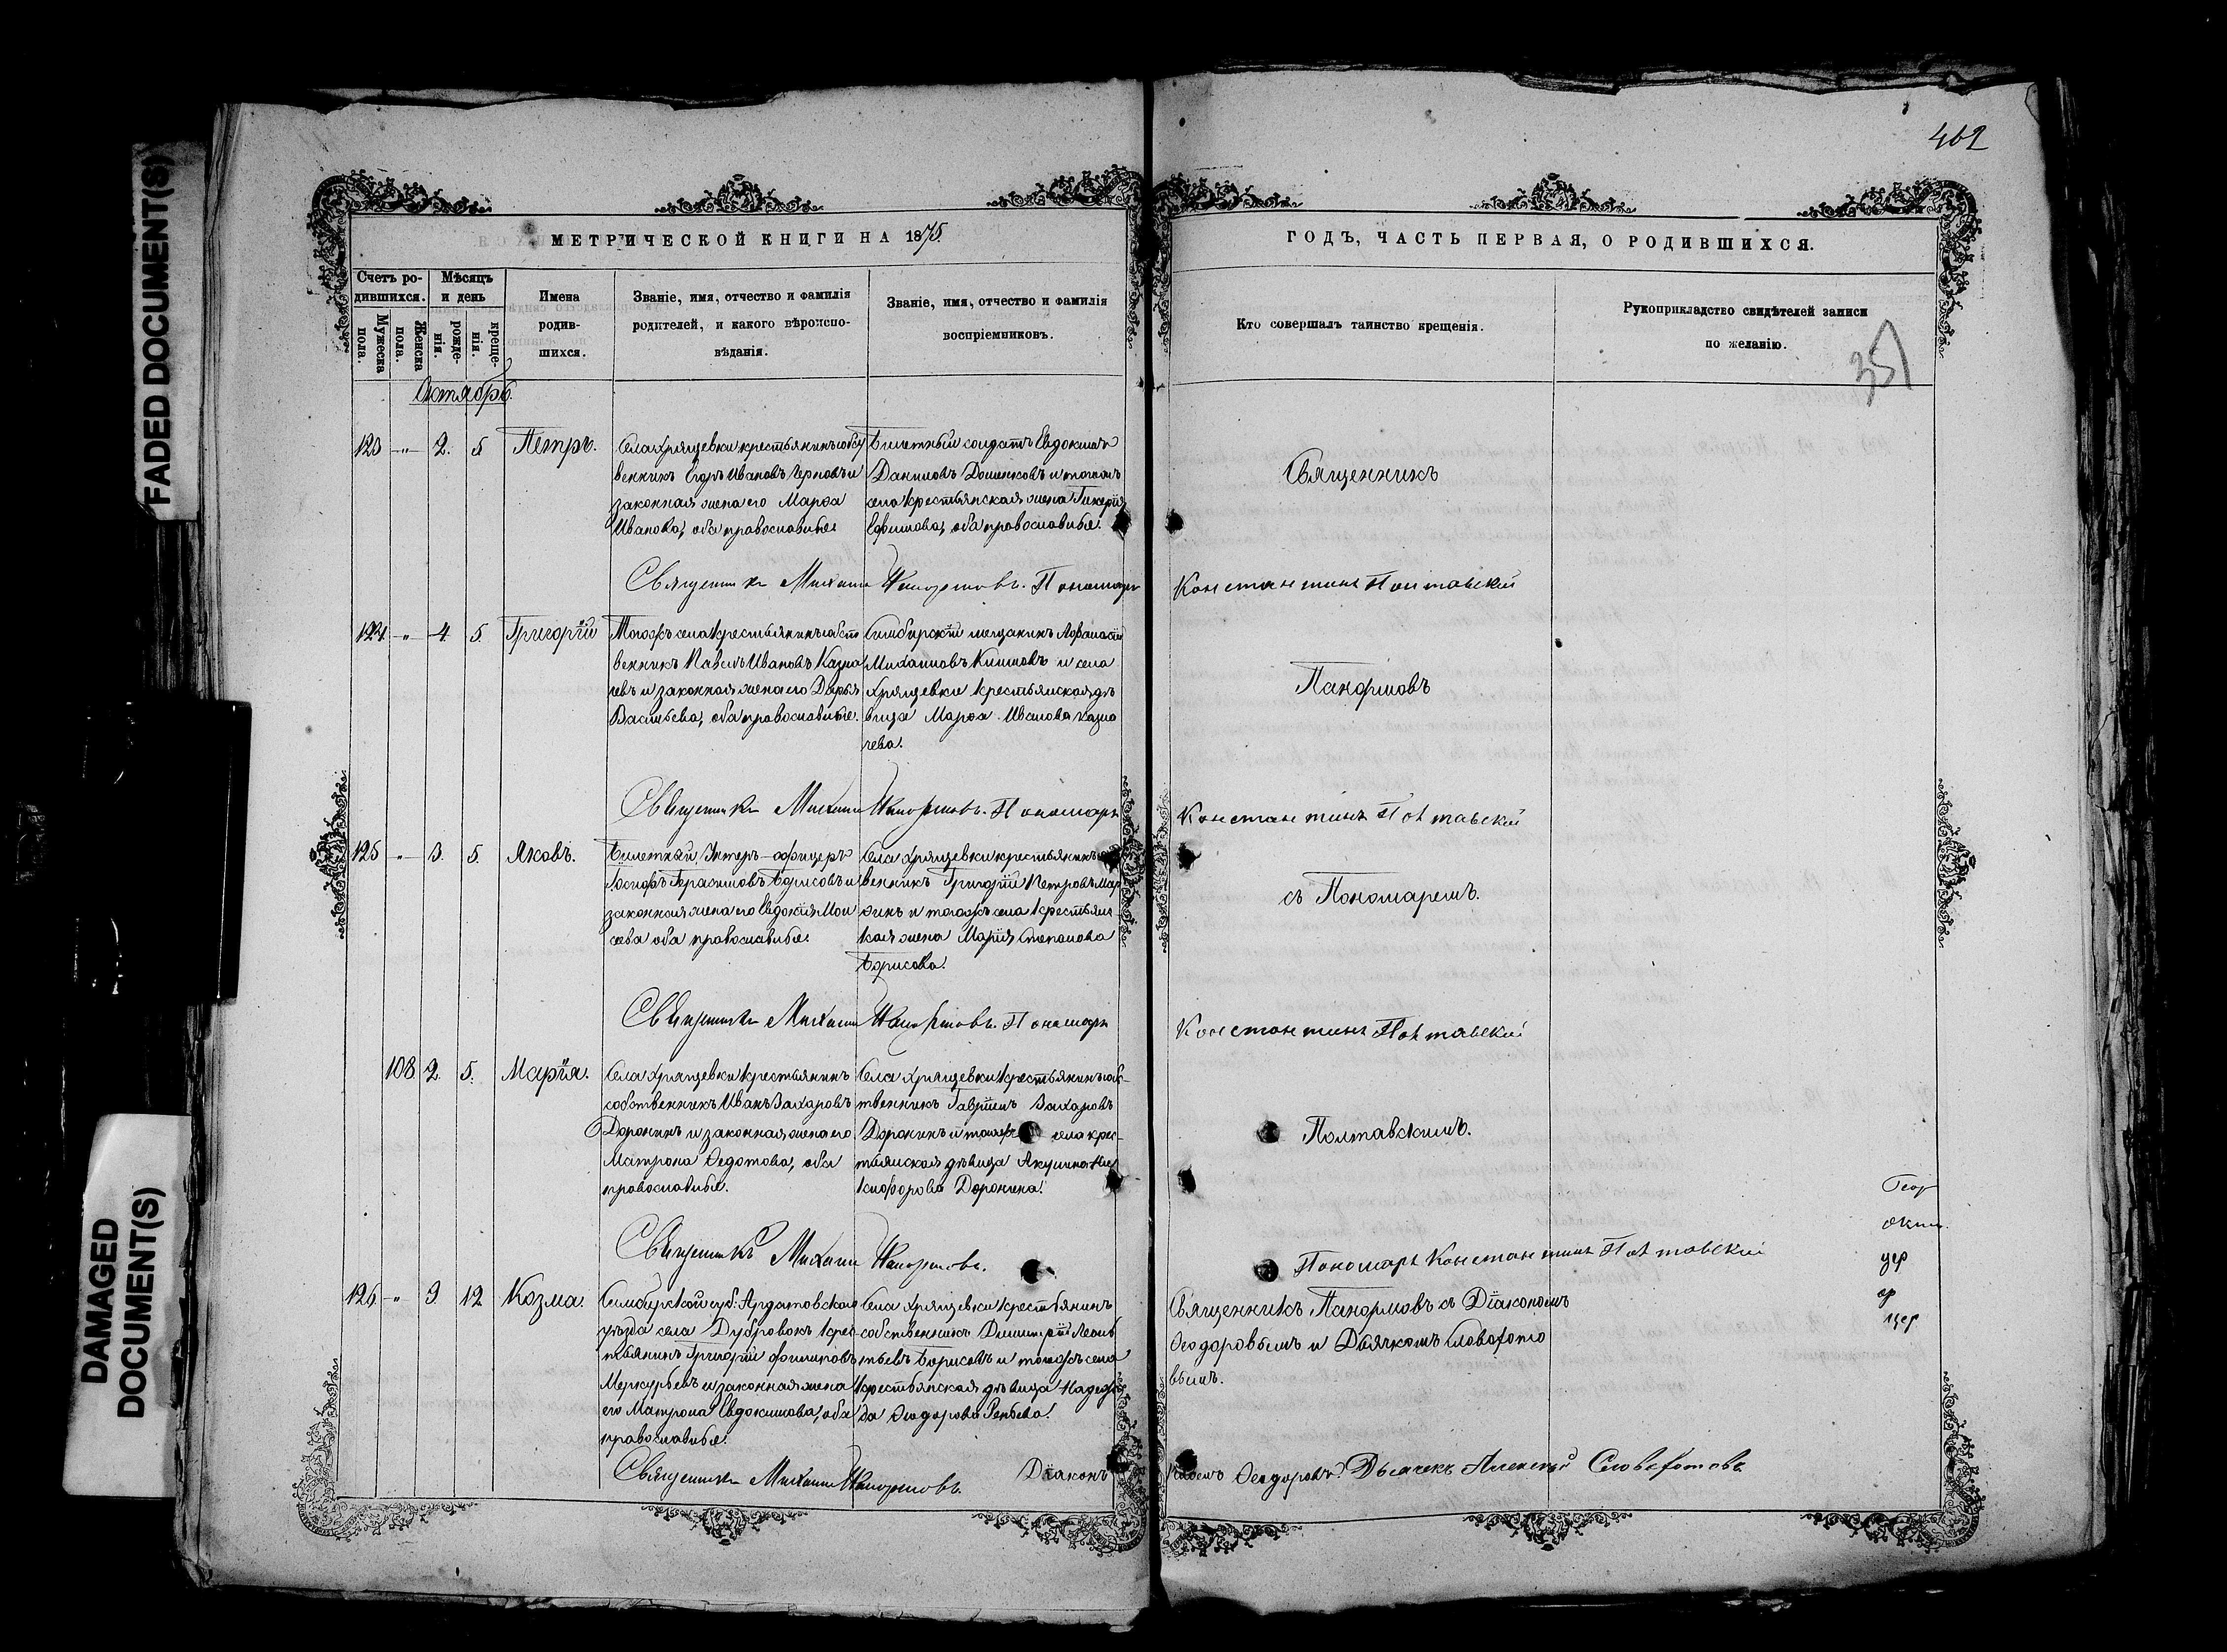 462
МЕТРИЧЕСКОЙ КНИГИ НА 1875.
ГОДЪ, ЧАСТЬ ПЕРВАЯ, О РОДИВШИХСЯ.
Счетъ родившихся.
Мужеска пола.
Женска пола.
Мѣсяцъ и день
рожденія.
крещенія.
Имена родив-
шихся.
Званіе, имя, отчество и фамилія
родителей, и какого вѣроиспо-
вѣданія.
Званіе, имя, отчество и фамилія
воспріемниковъ.
Кто совершалъ таинство крещенія.
Рукоприкладство свидѣтелей записи
по желанію.
351
Октябрь.
123 " 2. 5 Петръ.
Села Хрящевки крестьянинъ собст
венникъ Егоръ Ивановъ Черновъ и
законная жена его Марѳа
Иванова, оба православные.
Билетный солдатъ Евдокимъ
Даниловъ и тогожъ
села крестьянская жена Гликерія
Ефимова, оба православные.
Священникъ
Священникъ Михаилъ Панормовъ. Пономарь Константинъ Полтавскій
124 " 4 5. Григорій
Тогожъ села крестьянинъ собст
венникъ Павелъ Ивановъ Казна
чевъ и законная жена его Дарья
Васильева, оба православные.
Симбирскій мещанинъ Афанасій
Михаиловъ Климовъ и села
Хрящевки крестьянская дѣ
вица Марѳа Иванова Казна
чева.
Панормовъ
Священникъ Михаилъ Панормовъ. Пономарь Константинъ Полтавскій
125 " 3. 5. Яковъ.
Билетный Унтеръ-офицеръ
Іосифъ Герасимовъ Борисовъ и
законная жена его Евдокія Мои
сеева оба православные.
Села Хрящевки крестьянинъ
венникъ Григорій Петровъ
и тогожъ села крестьянс
кая жена Марія Степанова
Борисова.
съ Пономаремъ.
Священникъ Михаилъ Панормовъ. Пономарь Константинъ Полтавскій
108 2. 5. Марія.
Села Хрящевки крестьянинъ
собственникъ Иванъ Захаровъ
Доронинъ и законная жена его
Матрона Ѳедотова, оба
православные.
Села Хрящевки крестьянинъ собс-
твенникъ Гавріилъ Захаровъ
Доронинъ и тогожъ села крес-
тьянская дѣвица Акулина Ни
кифорова Доронина.
Полтавскимъ.
Священникъ Михаилъ Панормовъ. Пономарь Константинъ Полтавскій
126. " 9. 12 Козма.
Симбирской губ. Ардатовскаго
уѣзда села Дубровокъ крес-
тьянинъ Григорій Филиповъ
Меркурьевъ и законная жена
его Матрона Евдокимова, оба
православные.
Села Хрящевки крестьянинъ
собственникъ Димитрій Леонть
тьевъ Борисовъ и тогожъ села
крестьянская дѣвица Надеж
да Ѳеодорова
Священникъ Панормовъ съ Діакономъ
Ѳеодоровымъ и Дьячкомъ Словохото
вымъ.
Геор
цер
Священникъ Михаилъ Панормовъ. Діаконъ Ѳеодоровъ. Дьячекъ Алексѣй Словохотовъ
FADED DOCUMENT(S)
DAMAGED
DOCUMENT(S)